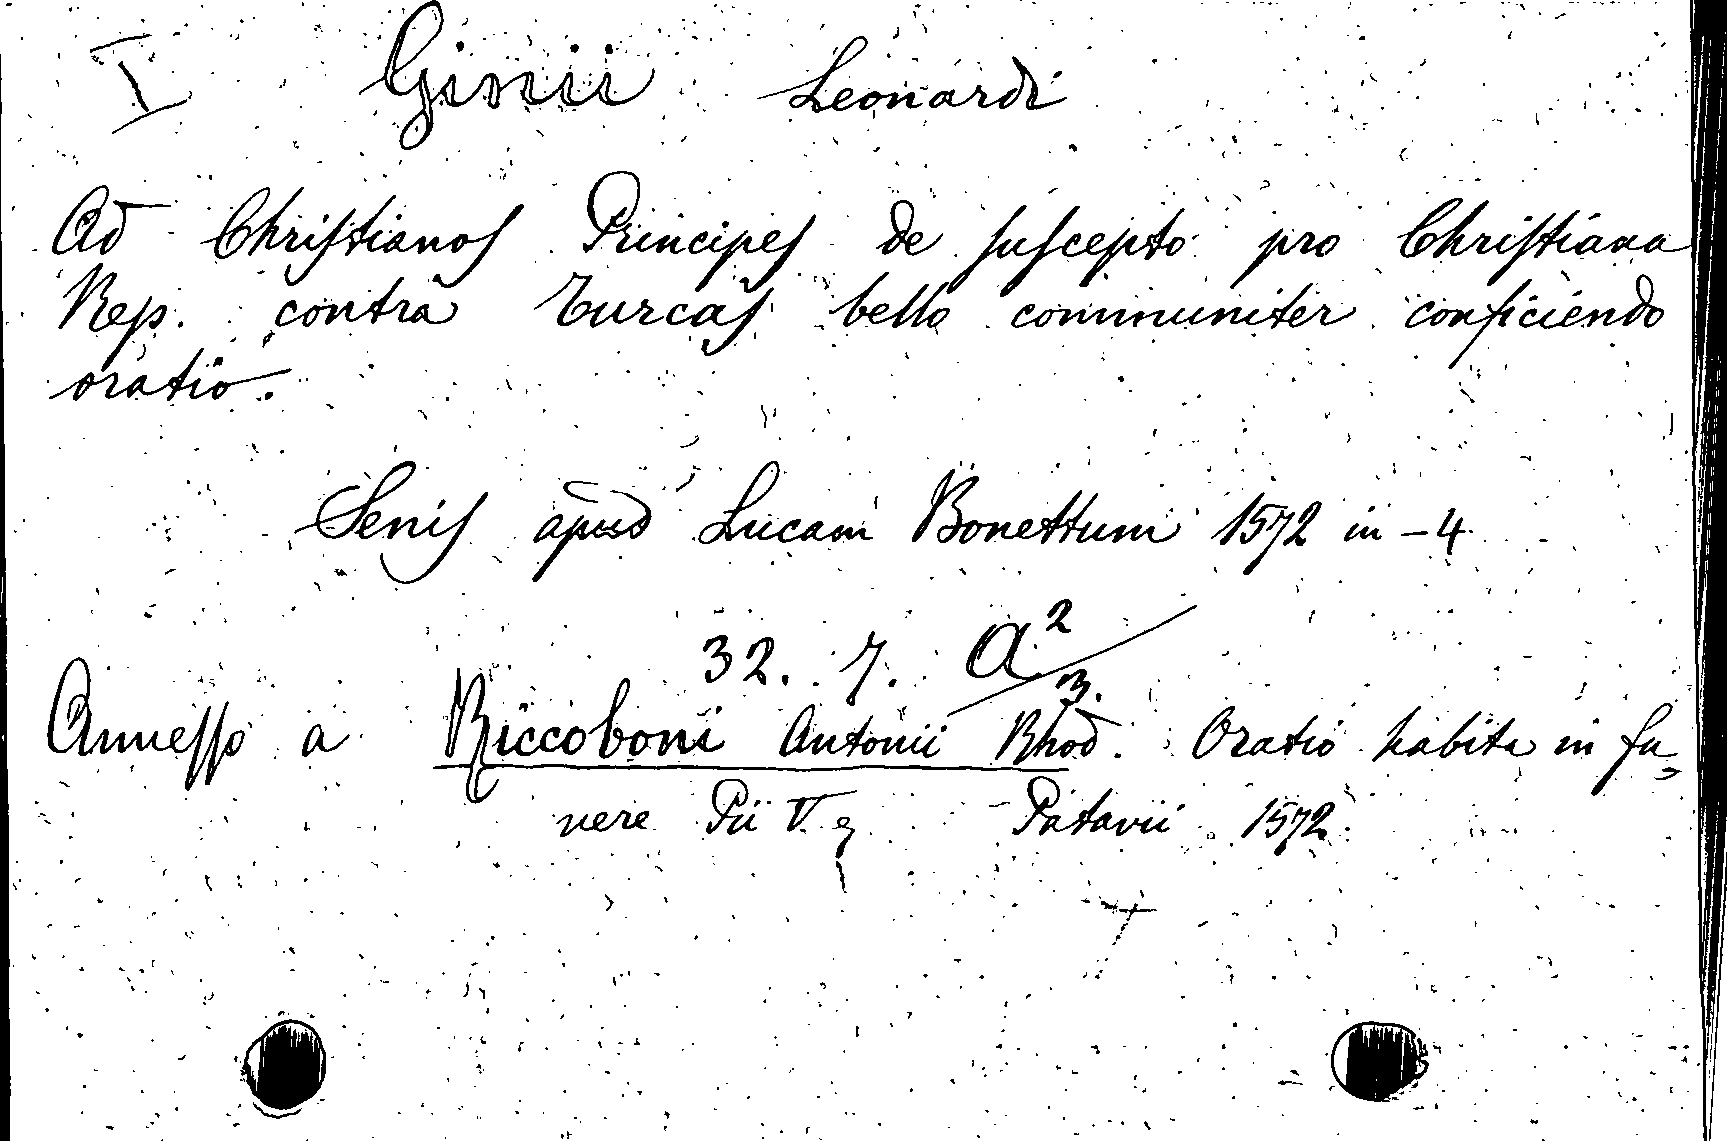 I Ginii Leonardi
Ad Christianos Principes de suscepto pro Christiana
Rep. contra Turcas bello communiter conficiendo
oratio.
Senis apud Lucam Bonettum 1572 in-4
32. 7. a²/3.
Annesso a Riccoboni Antonii Rhod. Oratio habita in fu-
nere Pii V. Patavii 1572.